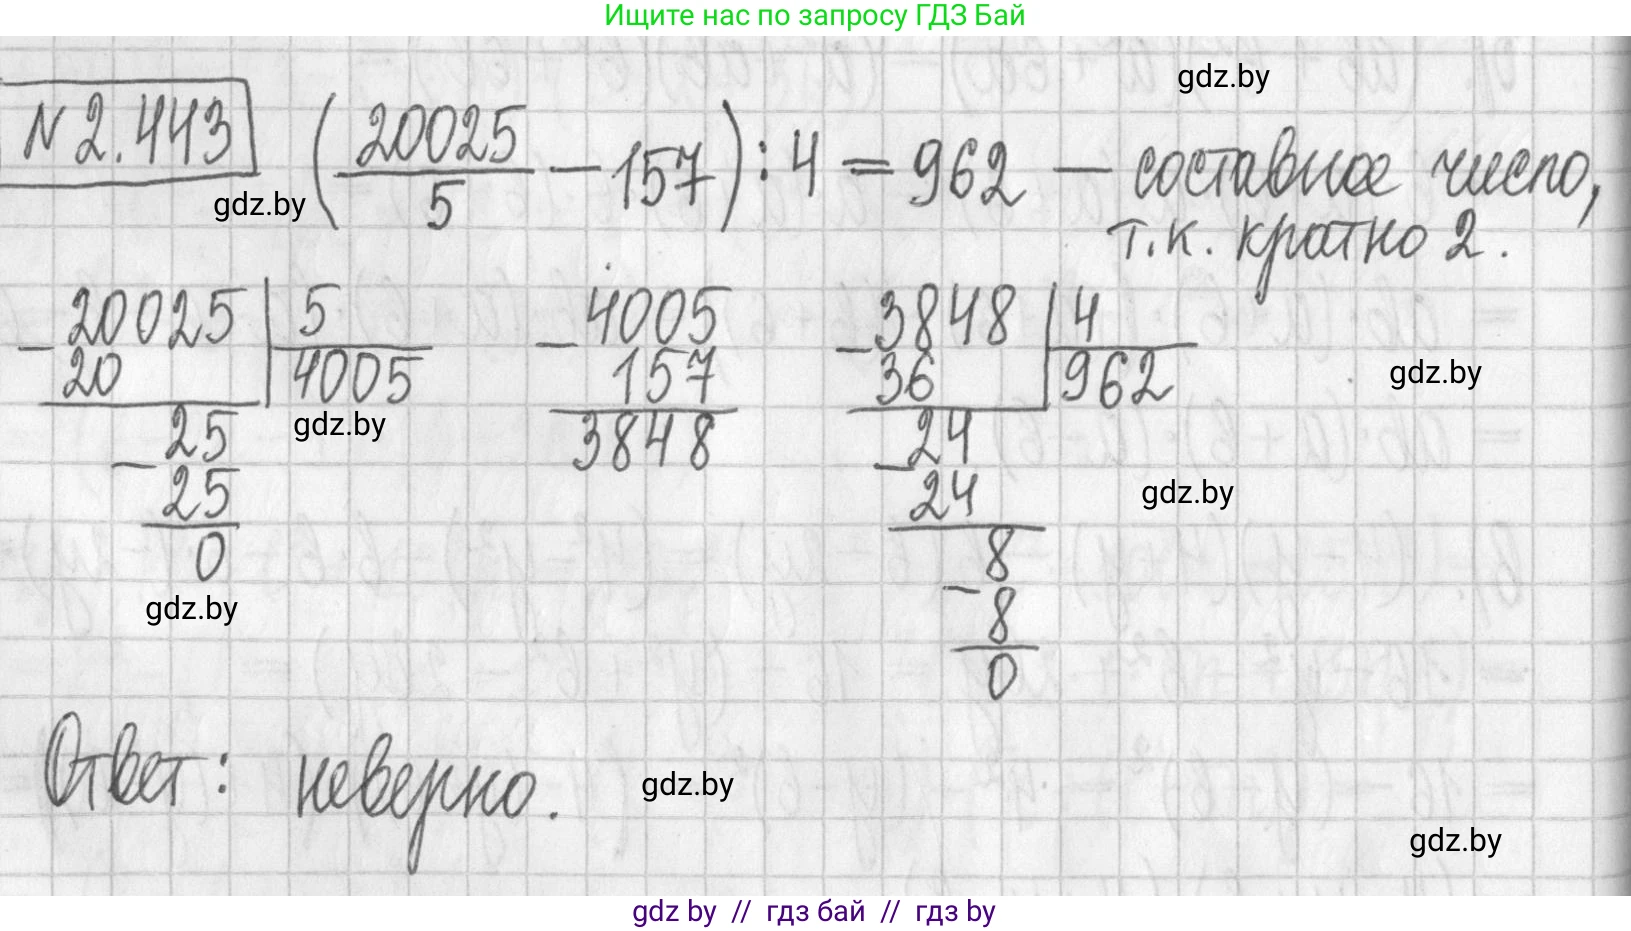 Ищите нас по запросу ГДЗ Бай
gdz.by
N 2.443 (20025/5 - 157) : 4 = 962 — составное число,
gdz.by
т.к. кратно 2.
20025 | 5
- 20 | 4005
25
- 25
0
4005
- 157
3848
3848 | 4
- 36 | 962
24
- 24
8
- 8
0
gdz.by
gdz.by
gdz.by
gdz.by
Ответ: неверно.
gdz.by
gdz.by
gdz by // гдз бай // гдз by